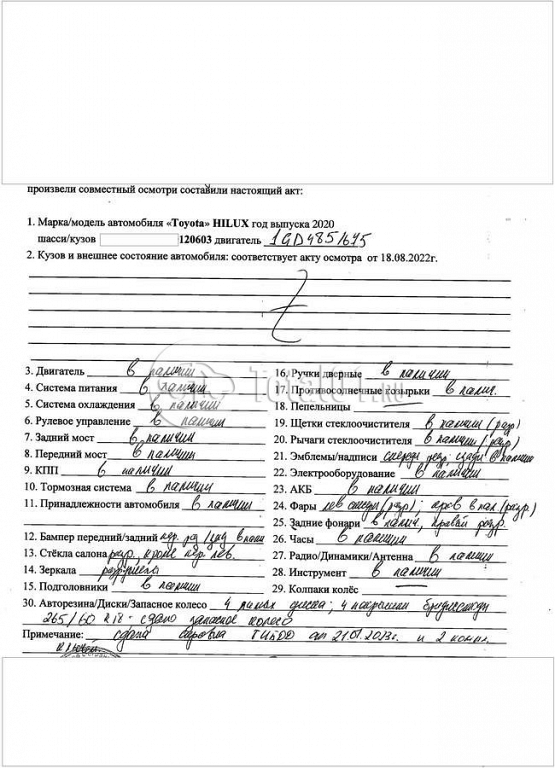 произвели совместный осмотр и составили настоящий акт:
1. Марка/модель автомобиля «Toyota» HILUX год выпуска 2020
шасси/кузов 120603 двигатель 1GD4851675
2. Кузов и внешнее состояние автомобиля: соответствует акту осмотра от 18.08.2022г.
3. Двигатель в наличии
4. Система питания в наличии
5. Система охлаждения в наличии
6. Рулевое управление в наличии
7. Задний мост в наличии
8. Передний мост в наличии
9. КПП в наличии
10. Тормозная система в наличии
11. Принадлежности автомобиля в наличии
12. Бампер передний/задний
13. Стёкла салона разр. кроме пер. лев.
14. Зеркала разрушены
15. Подголовники в наличии
16. Ручки дверные в наличии
17. Противосолнечные козырьки в налич.
18. Пепельницы
19. Щетки стеклоочистителя в наличии (разр)
20. Рычаги стеклоочистителя в наличии (разр)
21. Эмблемы/надписи
22. Электрооборудование в наличии
23. АКБ в наличии
24. Фары
25. Задние фонари в налич, правый разр.
26. Часы в наличии
27. Радио/Динамики/Антенна в наличии
28. Инструмент в наличии
29. Колпаки колёс
30. Авторезина/Диски/Запасное колесо 4 литых диска; 4 покрышки
265/60 R18 - сдано запасное колесо
Примечание: сдана
TotalUt.ru